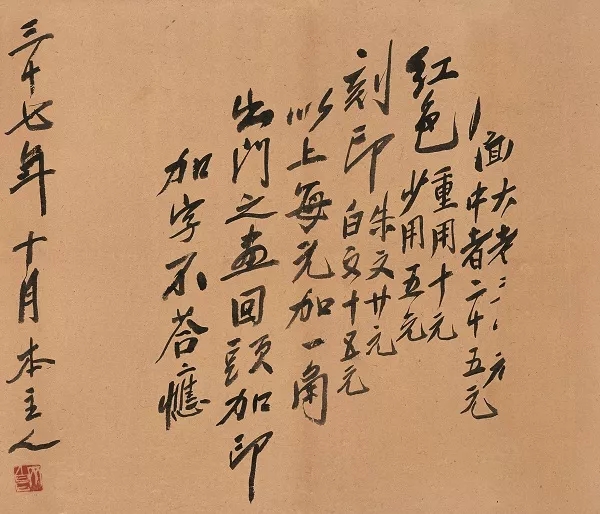 面
大者
中者二十五元
紅色
重用十元
少用五元
刻印
朱文廿元
白文十五元
以上每元加一角
出門之畫回頭加印
加字不荅應
三十七年十月本主人